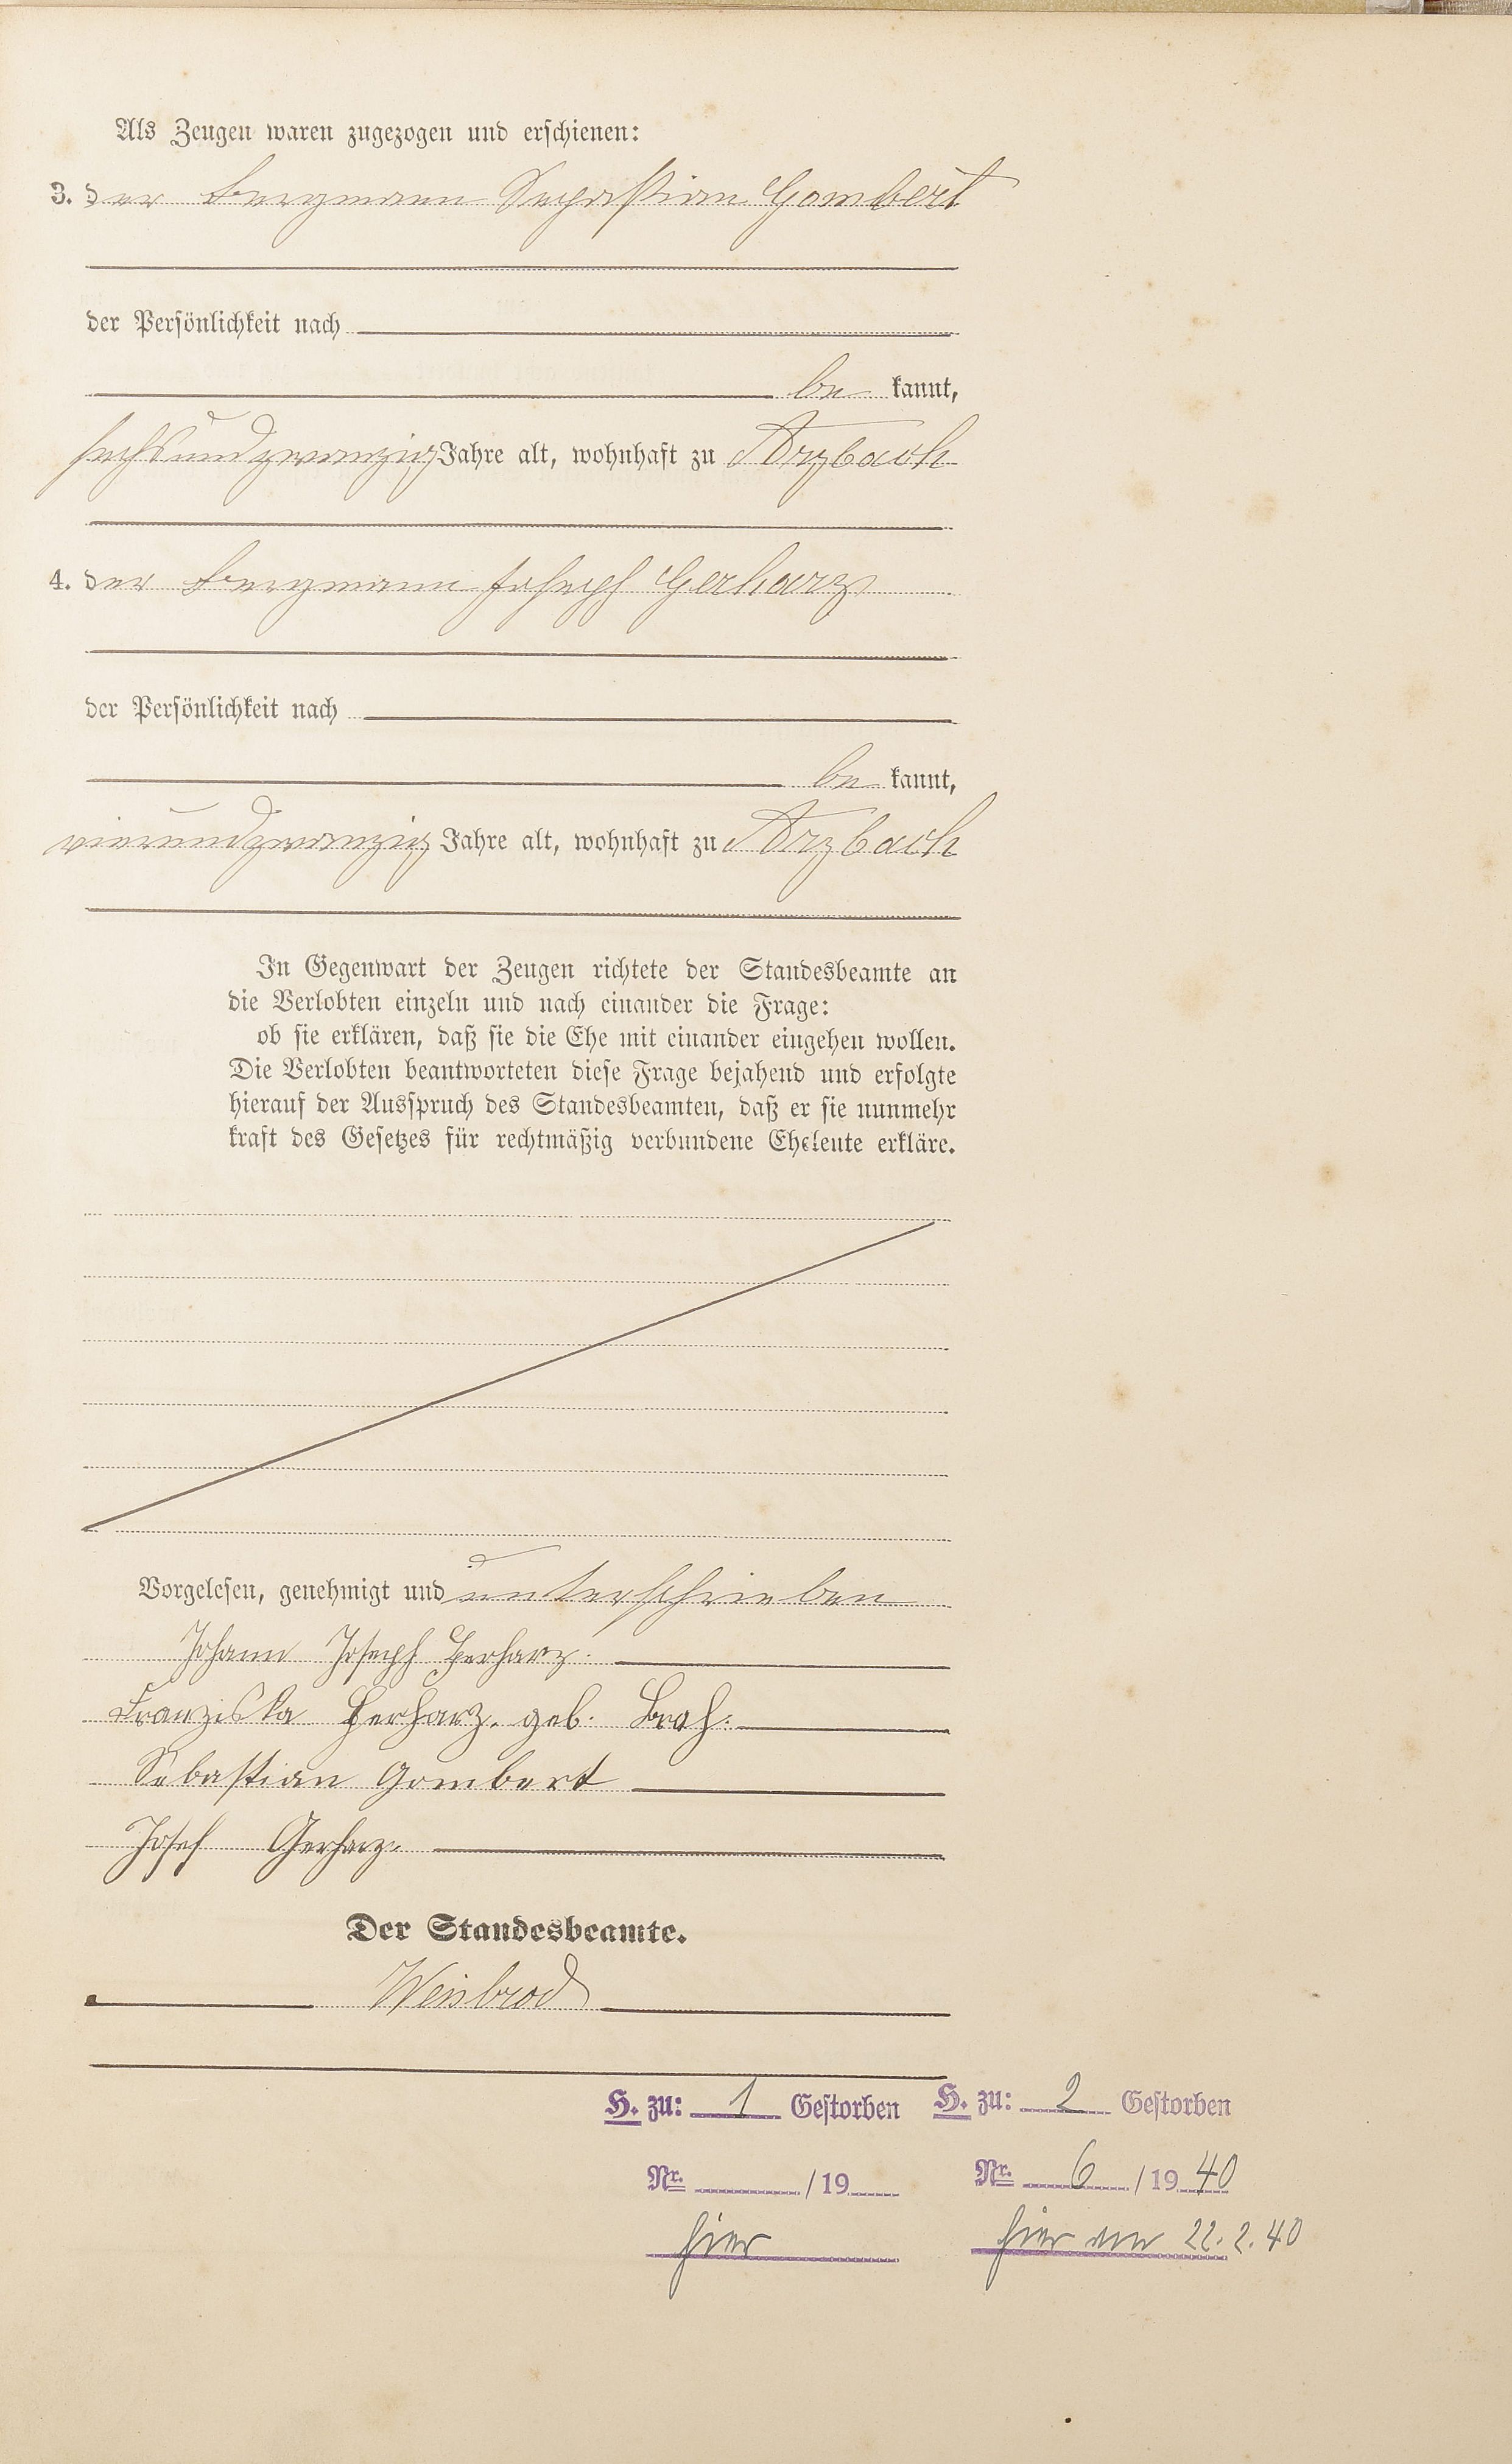 Als Zeugen waren zugezogen und erschienen:
3. der Bergmann Sebastian Gombert
der Persönlichkeit nach
be kannt,
sechsundzwanzig Jahre alt, wohnhaft zu Arzbach
4. der Bergmann Joseph Gerharz
der Persönlichkeit nach
be kannt,
vierundzwanzig Jahre alt, wohnhaft zu Arzbach
In Gegenwart der Zeugen richtete der Standesbeamte an
die Verlobten einzeln und nach einander die Frage:
ob sie erklären, daß sie die Ehe mit einander eingehen wollen.
Die Verlobten beantworteten diese Frage bejahend und erfolgte
hierauf der Ausspruch des Standesbeamten, daß er sie nunmehr
kraft des Gesetzes für rechtmäßig verbundene Eheleute erkläre.
Vorgelesen, genehmigt und unterschrieben
Johann Joseph Gerharz.
Franziska Gerharz. geb.
Sebastian Gombert
Josef Gerharz.
Der Standesbeamte.
Weisbrod
H. zu: 1 Gestorben H. zu: 2 Gestorben
Nr. /19 Nr. 6 /19 40
hier hier am 22.2.40